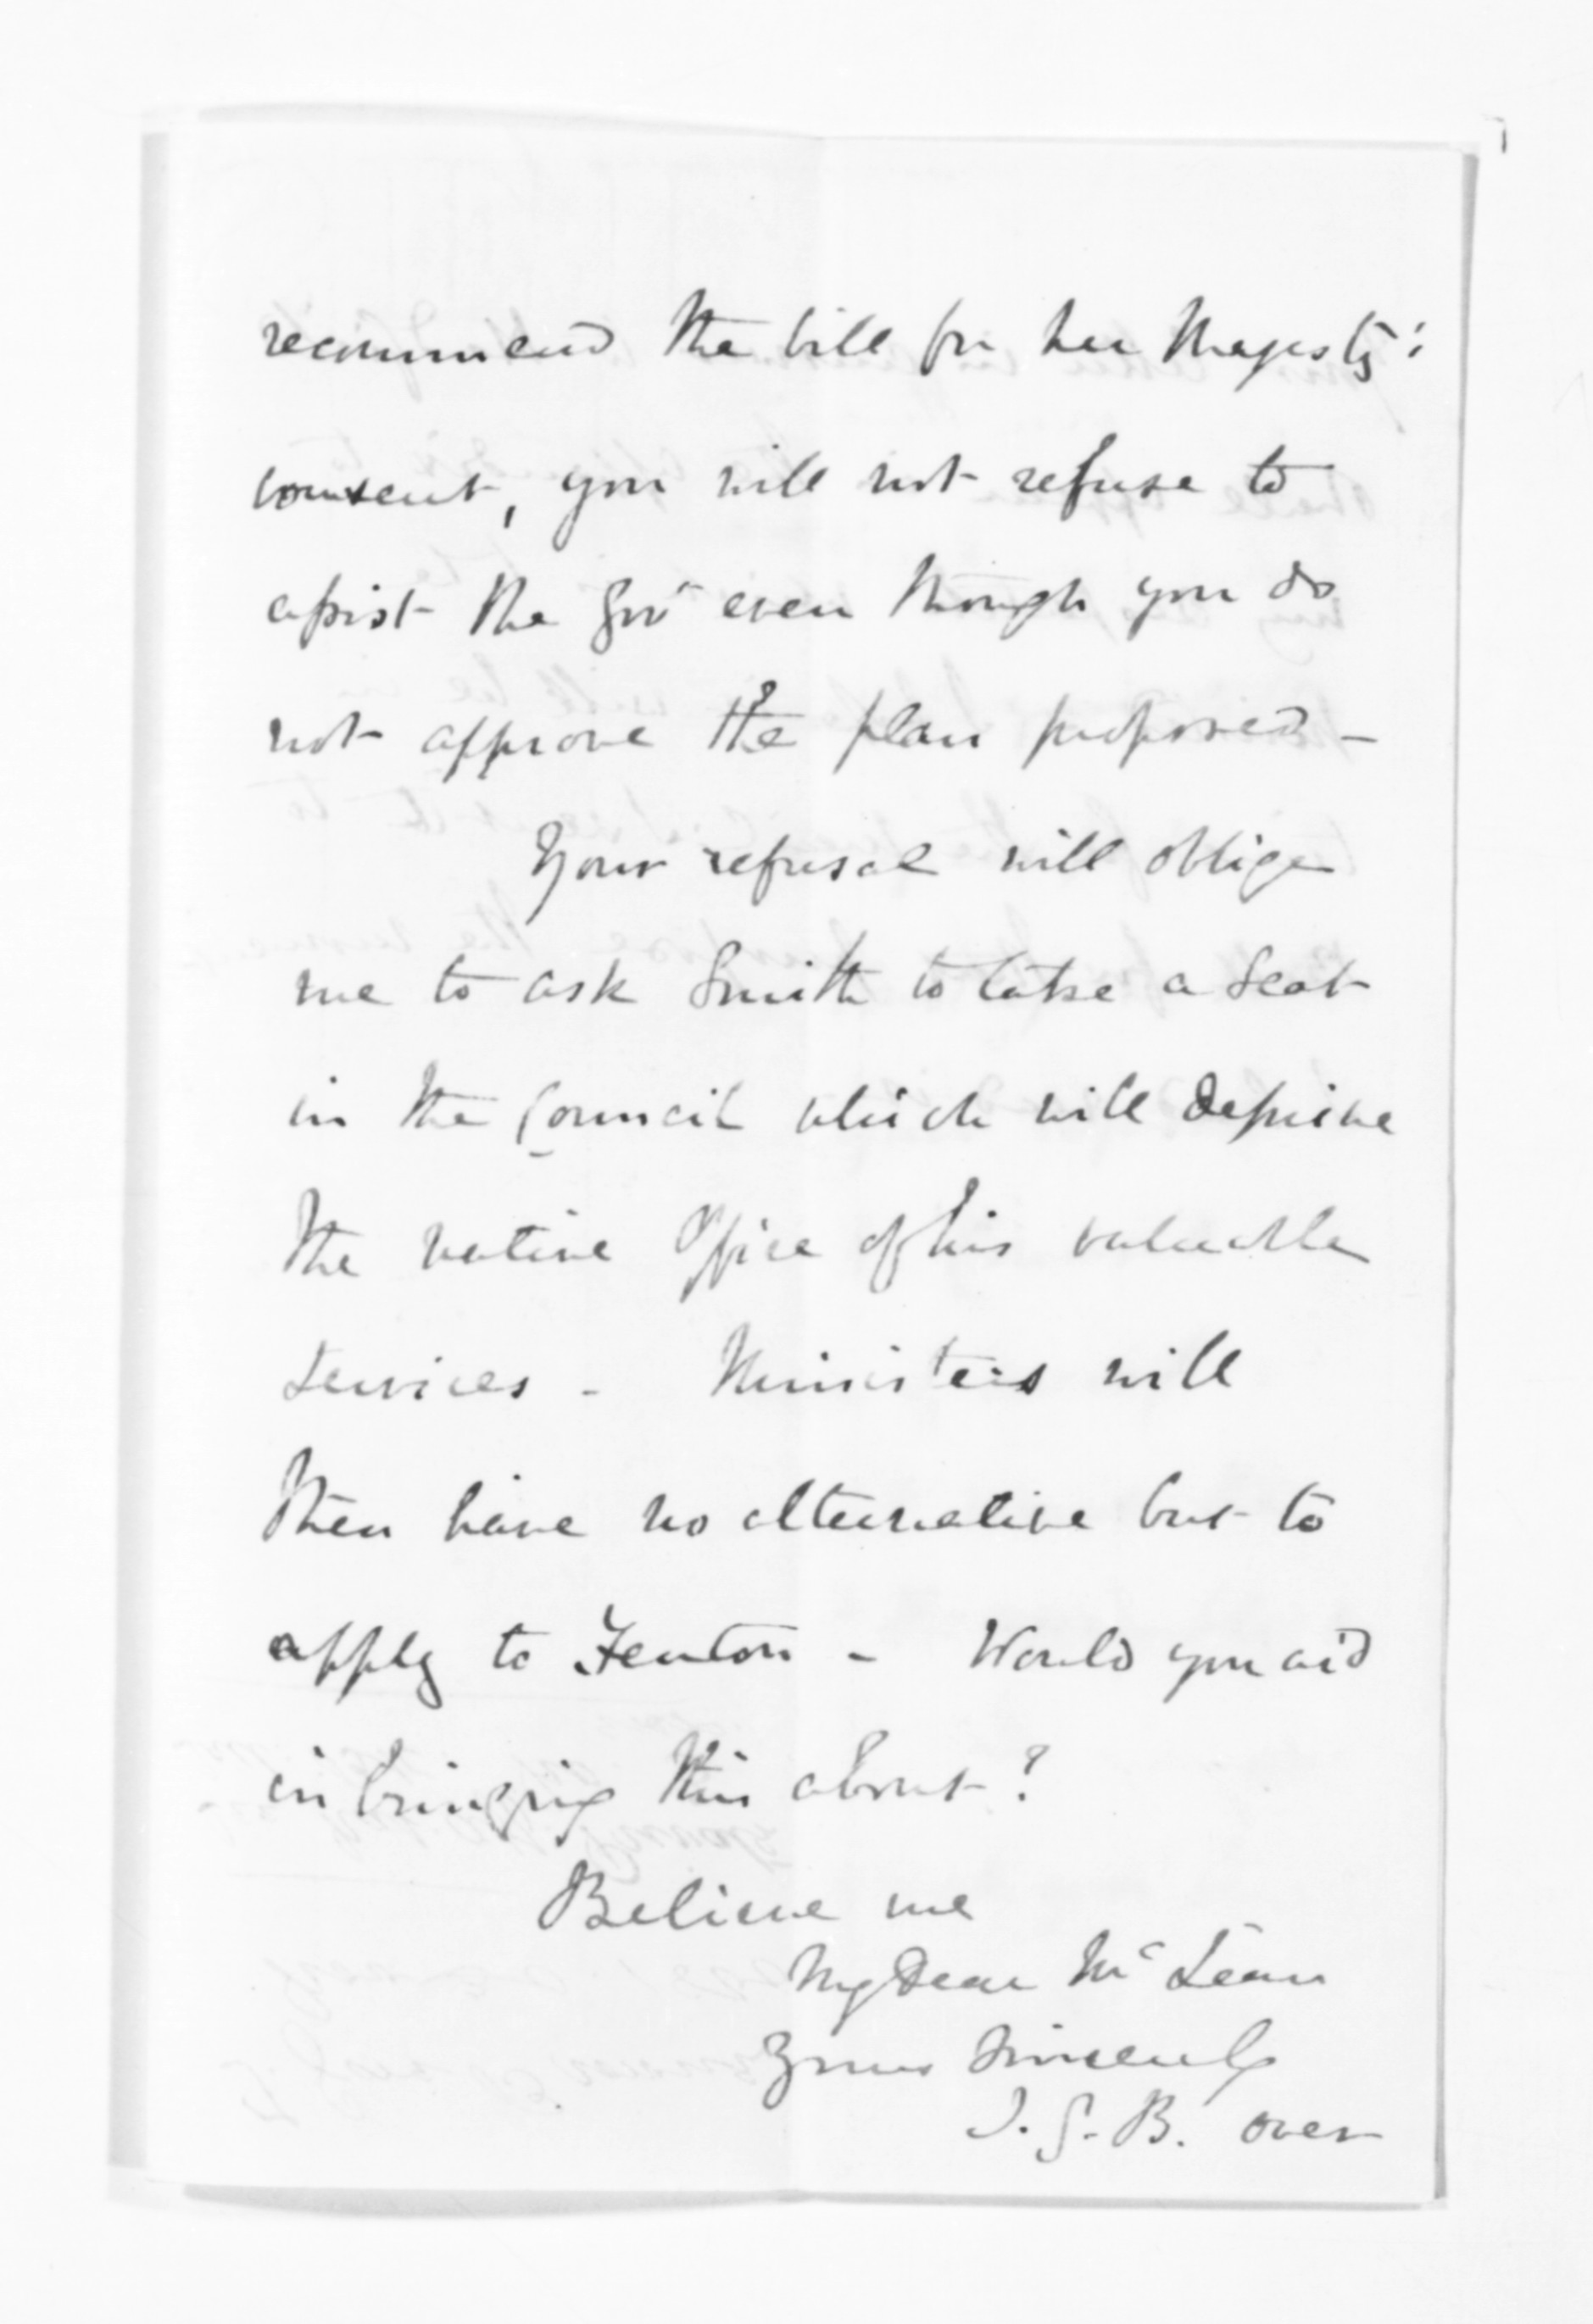 recommend the bill for her Majesty's
consent, you will not refuse to
assist the Govt even though you do
not approve the plan proposed -
Your refusal will oblige
me to ask Smith to take a seat
in the Council which will deprive
the native Office of his valuable
services - Ministers will
then have no alternative but to
apply to Fenton - Would you aid
in bringing this about?
Believe me
My Dear Mc Lean
Yours Sincerely
T. G. B. over